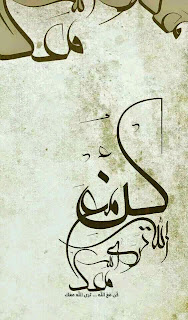 كن مع
الله ترى
الله معك
كن مع الله ... ترى الله معك